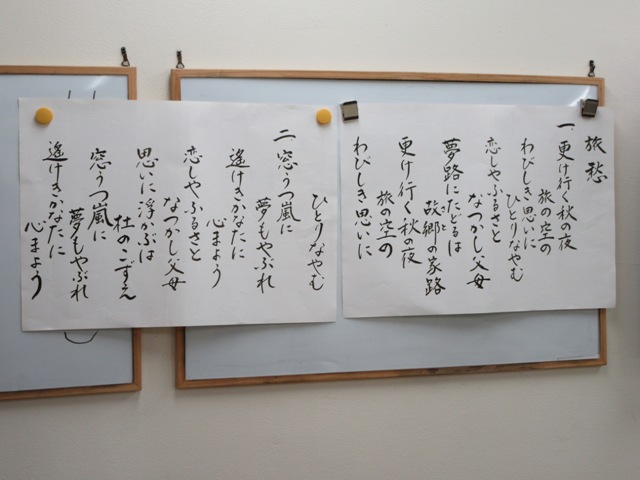 旅愁
一、更け行く秋の夜
旅の空の
わびしき思いに
ひとりなやむ
恋しやふるさと
なつかし父母
夢路にたどるは
故郷の家路
さと
更け行く秋の夜
旅の空の
わびしき思いに
ひとりなやむ
二、窓うつ嵐に
夢もやぶれ
遙けきかなたに
心まよう
恋しやふるさと
なつかし父母
思いに浮かぶは
杜のこずえ
窓うつ嵐に
夢もやぶれ
遙けきかなたに
心まよう